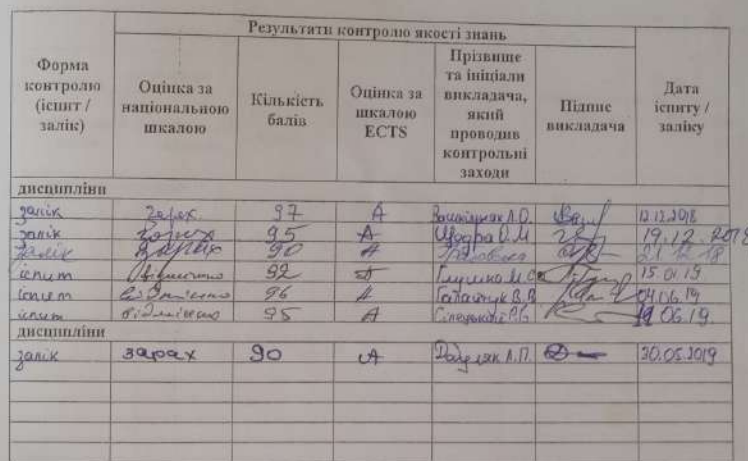 Результати контролю якості знань
Форма контролю (іспит / залік)
Оцінка за національною шкалою
Кількість балів
Оцінка за шкалою ECTS
Прізвище та ініціали викладача, який проводив контрольні заходи
Підпис викладача
Дата іспиту / заліку
дисципліни
залік зарах 97 A Л.О. 12.12.2018
залік зарах 95 A Щодра О.М 19.12.2018
залік зарах 90 A 21.12.18
іспит відмінно 92 A 15.01.19
іспит відмінно 96 A 04.06.19
іспит відмінно 95 A 06.19
дисципліни
залік зарах 90 A Л.П. 30.05.2019